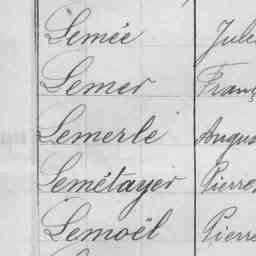 Lemée Jule
Lemer Franç
Lemerle Augus
Lemétayer Pierre
Lemoël Pierre